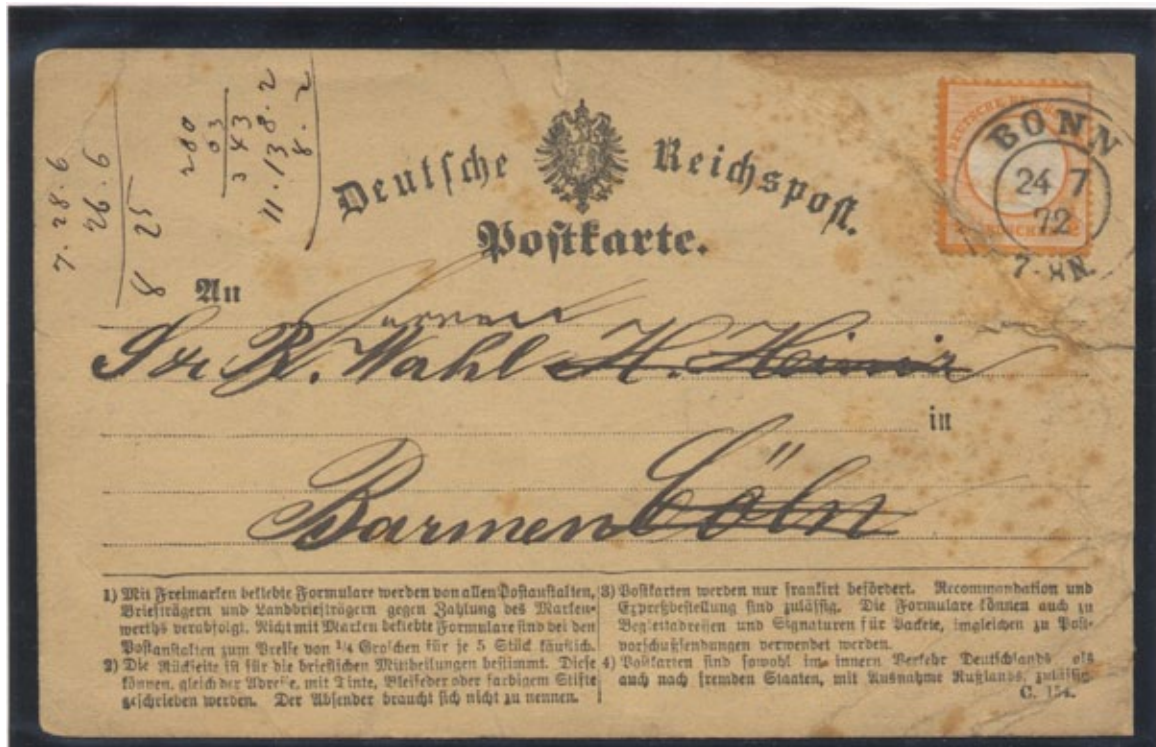 7.28.6
26.6
8 25
280
03
3 43
11.13 8.2
8.2
Deutsche Reichspost.
Postkarte.
DEUTSCHE REICHS
BONN
24 7
72
7-8N.
An
Herrn
R. Wahl H.
in
Barmen Cöln
1) Mit Freimarken beklebte Formulare werden von allen Postanstalten,
Briefträgern und Landbriefträgern gegen Zahlung des Marken-
werths verabfolgt. Nicht mit Marken beklebte Formulare sind bei den
Postanstalten zum Preise von 1/4 Groschen für je 5 Stück käuflich.
2) Die Rückseite ist für die brieflichen Mittheilungen bestimmt. Diese
können, gleich der Adresse, mit Tinte, Bleifeder oder farbigem Stifte
geschrieben werden. Der Absender braucht sich nicht zu nennen.
3) Postkarten werden nur frankirt befördert. Recommandation und
Expreßbestellung sind zulässig. Die Formulare können auch zu
Begleitadressen und Signaturen für Packete, imgleichen zu Post-
vorschußsendungen verwendet werden.
4) Postkarten sind sowohl im innern Verkehr Deutschlands als
auch nach fremden Staaten, mit Ausnahme Rußlands, zulässig.
C. 154.